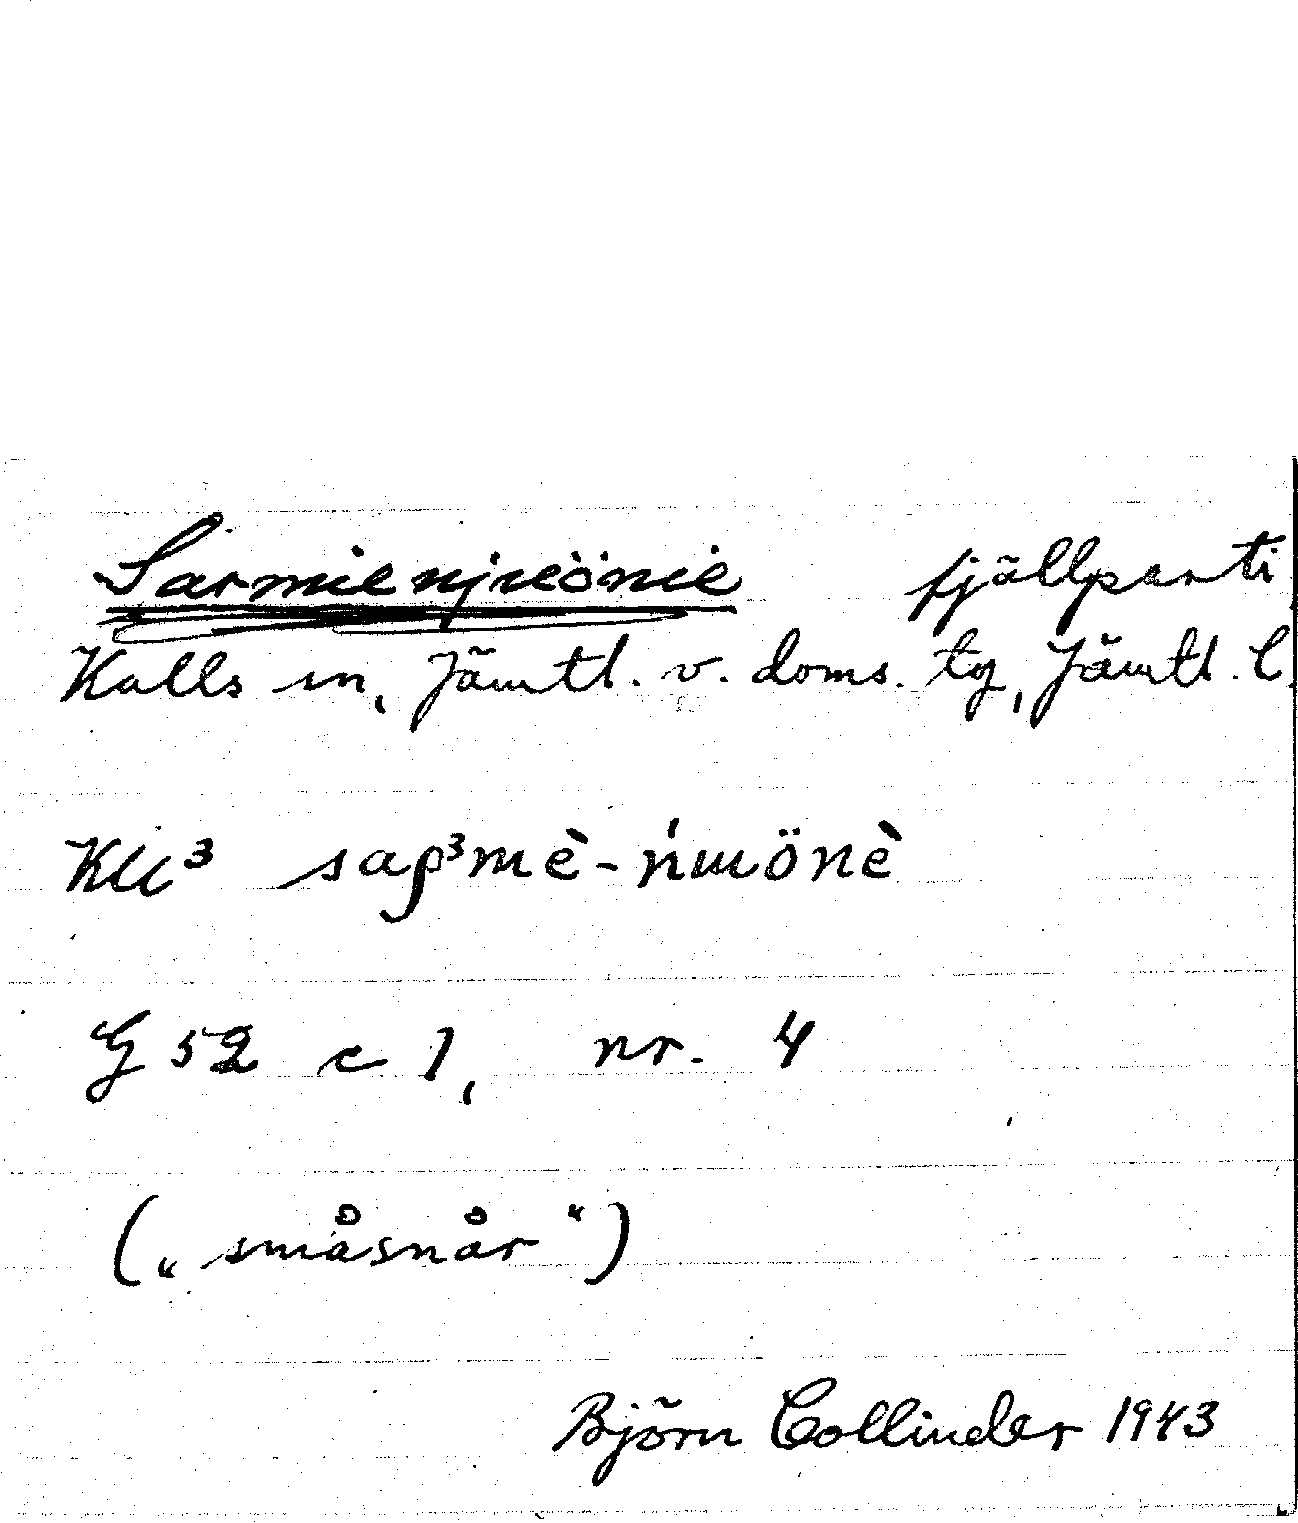 Sarmienjueönie fjällparti
Kalls sn, Jämtl. v. doms. tg, Jämtl. l.
Kll³ saρ³mè-ṇ́ɯönè
G 52 c 1, nr. 4
(„småsnår“)
Björn Collinder 1943